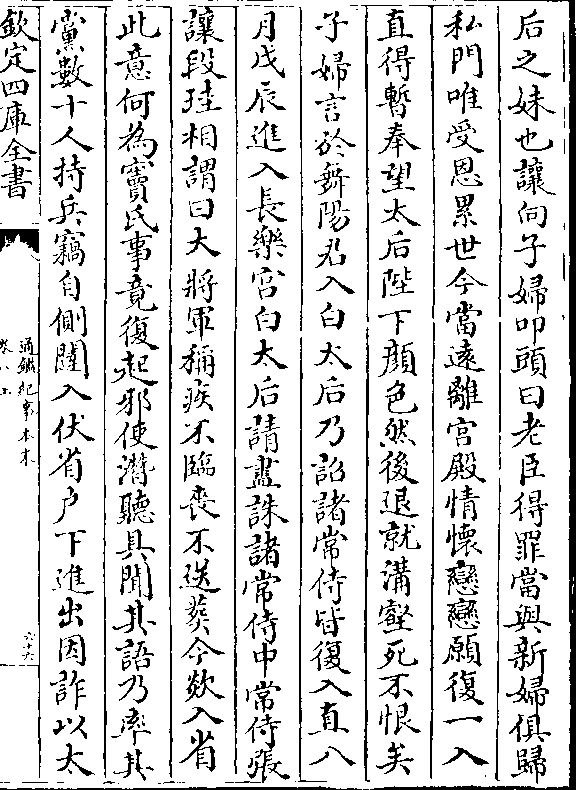 后之妹也讓向子婦叩頭曰老臣得罪當與新婦俱歸
私門唯受恩累世今當遠離宮殿情懷戀戀願復一入
直得暫奉望太后陛下顔色然後退就溝壑死不恨矣
子婦言於舞陽君入白太后乃詔諸常侍皆復入直八
月戊辰進入長樂宮白太后請盡誅諸常侍中常侍張
讓段珪相謂曰大將軍稱疾不臨喪不送葬今欻入省
此意何為竇氏事竟復起邪使潛聽具聞其語乃率其
黨數十人持兵竊自側闥入伏省户下進出因詐以太
欽定四庫全書
通鑑紀事本末
卷八上
六十六